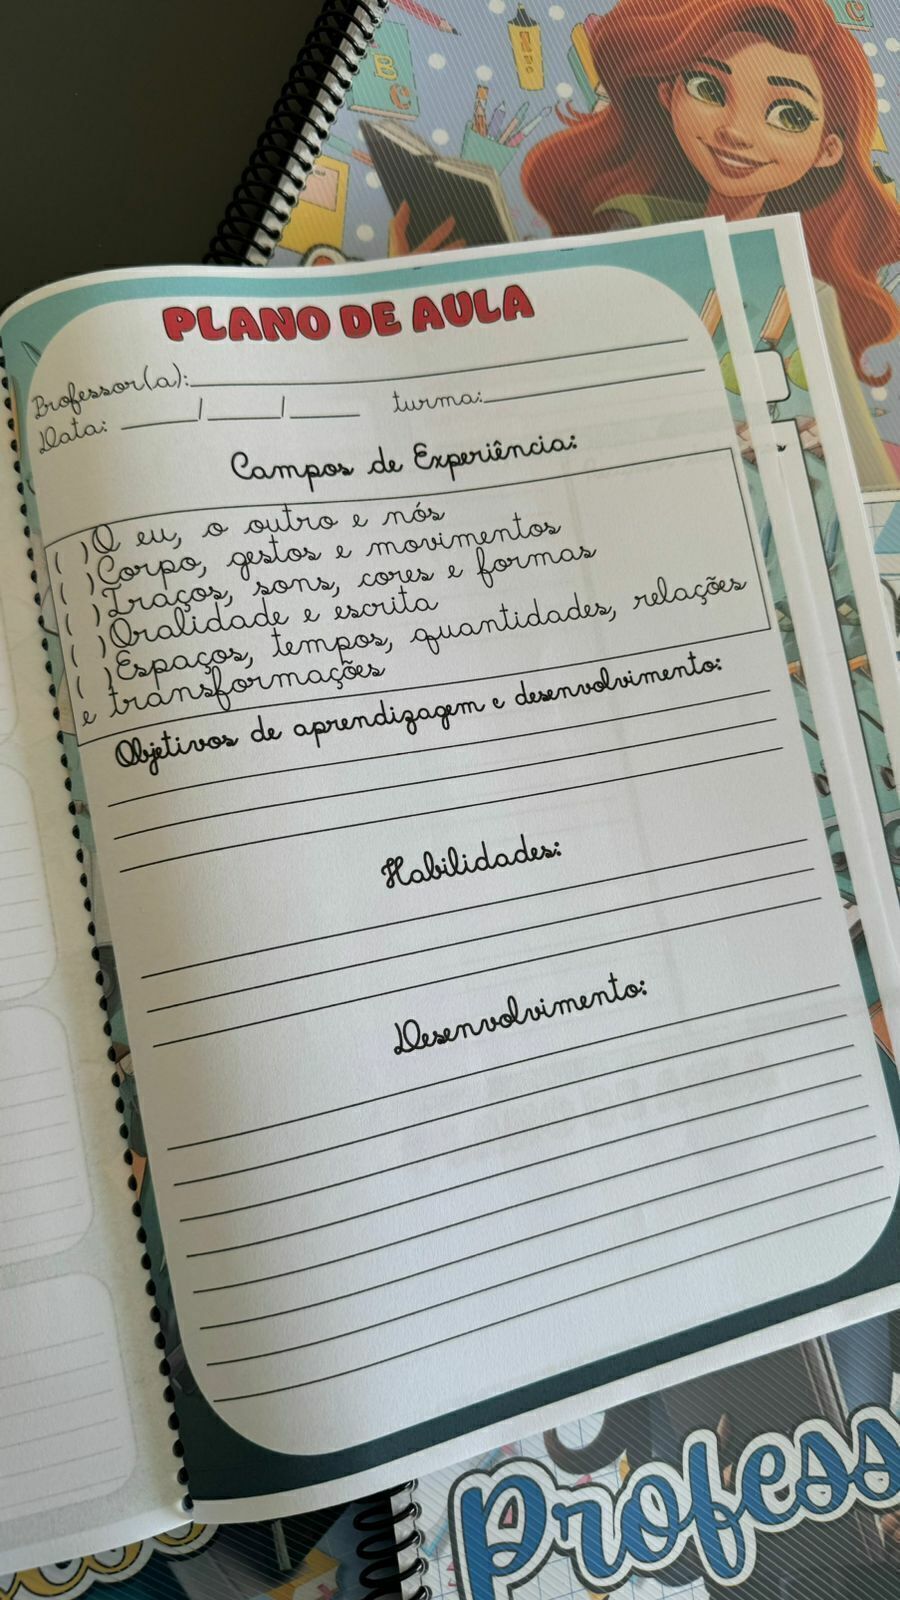 PLANO DE AULA
Professor(a):
Data: ___/___/___ turma:
Campos de Experiência:
( )O eu, o outro e nós
( )Corpo, gestos e movimentos
( )Traços, sons, cores e formas
( )Oralidade e escrita
( )Espaços, tempos, quantidades, relações
e transformações
Objetivos de aprendizagem e desenvolvimento:
Habilidades:
Desenvolvimento:
Profess